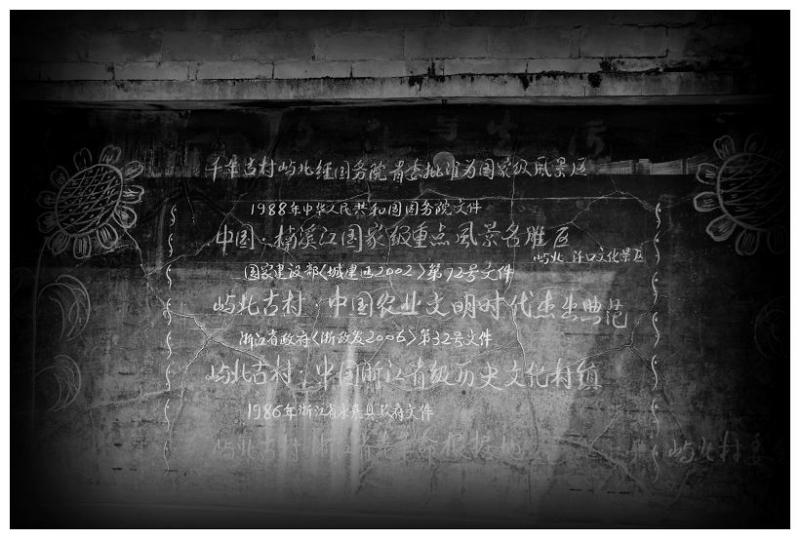 千年古村屿北经国务院首委批准为国家级风景区
1988年中华人民共和国国务院文件
中国：楠溪江国家级重点风景名胜区
屿北 洋口文化景区
国家建设部〈城建函2002〉第12号文件
屿北古村：中国农业文明时代杰出典范
浙江省政府〈浙政发2006〉第32号文件
屿北古村：中国浙江省级历史文化村镇
1986年浙江省永嘉县政府文件
屿北古村 浙江省 革命根据地
屿北村委